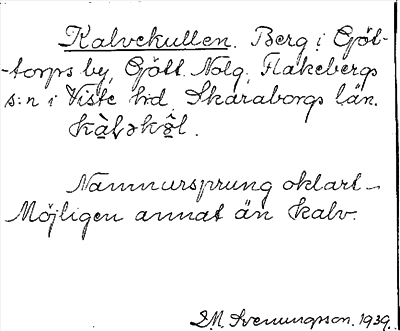 Kalvekullen. Berg i Göt-
-torps by, Gött. Nolg, Flakebergs
s:n i Viste hd, Skaraborgs län.
kàlvəkùl.
Namnursprung oklart –
Möjligen annat än kalv.
Svenungsson. 1939.